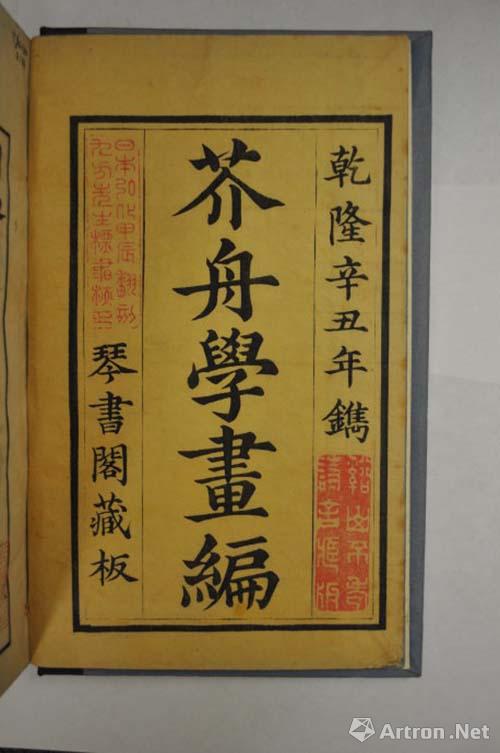 乾隆辛丑年鐫
芥舟學畫編
日本弘化甲辰翻刻
琴書閣藏板
Artron.Net